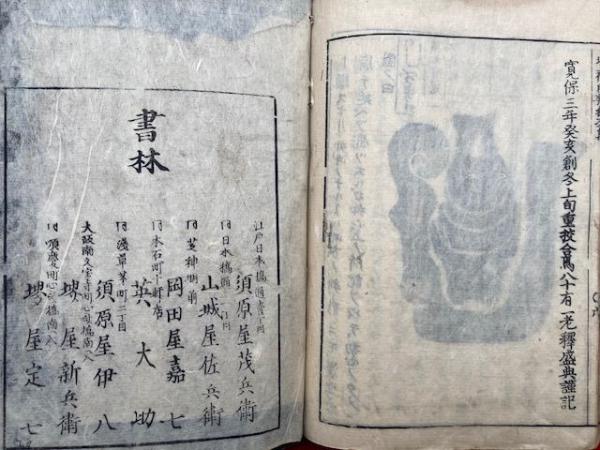 寛保三年癸亥創冬上旬重校合焉八十有一老釋盛典謹記
書林
江戸日本橋通壹丁目
須原屋茂兵衛
同日本橋通二丁目
山城屋佐兵衛
同芝神明前
岡田屋嘉七
同本石町十軒店
英大助
同淺草茅町二丁目
須原屋伊八
大阪南久宝寺町心斎橋南入
堺屋新兵衛
同順慶町心斎橋南入
堺屋定七